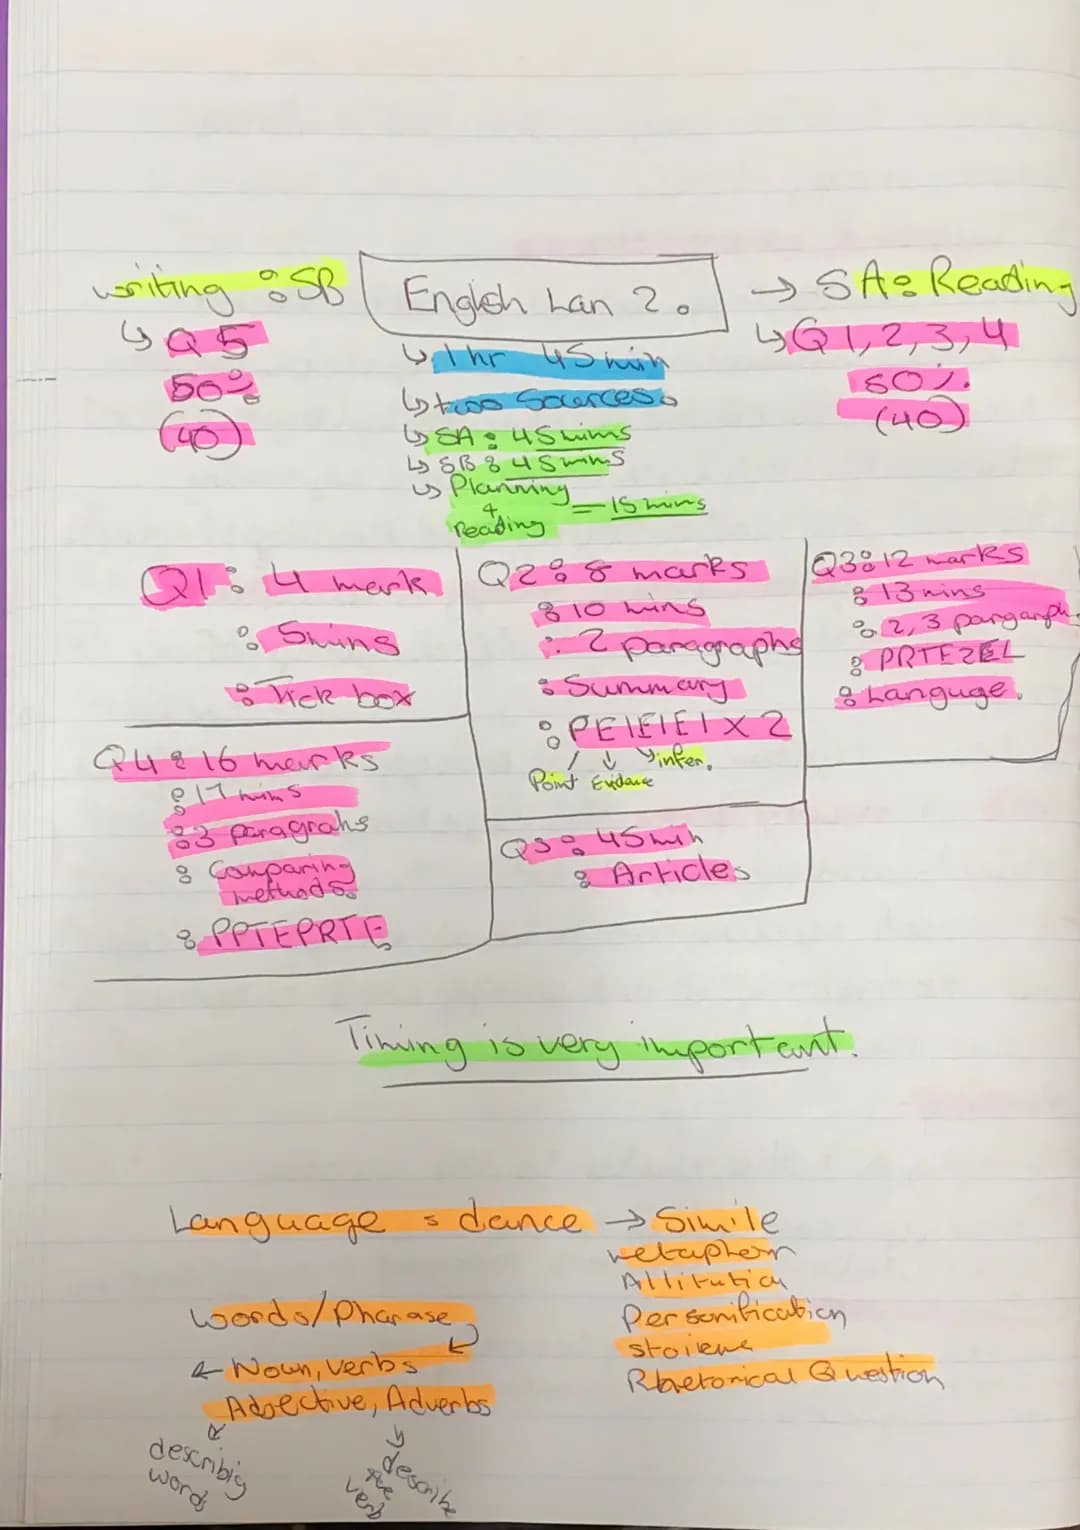 writing : SB
↳ Q5
50%
(40)
English Lan 2.
↳ 1 hr 45 min
↳ two Sources.
↳ SA : 45 mins
↳ SB : 45 mins
↳ Planning
+
reading
= 15 mins
→ SA: Reading
↳ Q1,2,3,4
50%
(40)
Q1: 4 mark
: 5mins
: Tick box
Q2: 8 marks
: 10 mins
: 2 paragraphs
: Summary
: PEIEIEI X 2
Point Evidance infer.
Q3: 12 marks
: 13 mins
: 2,3 pargarph.
: PRTEZEL
: Languge.
Q4: 16 marks
: 17 mins
: 3 paragrahs
: Comparing
methods.
: PPTEPRTE
Q5: 45 min
: Articles
Timing is very important.
Language : dance → Simile
metaphor
Personification
Rhetorical Question
Words/Pharase
← Noun, verbs
Adjective, Adverbs
describig
words
describe
the
verb